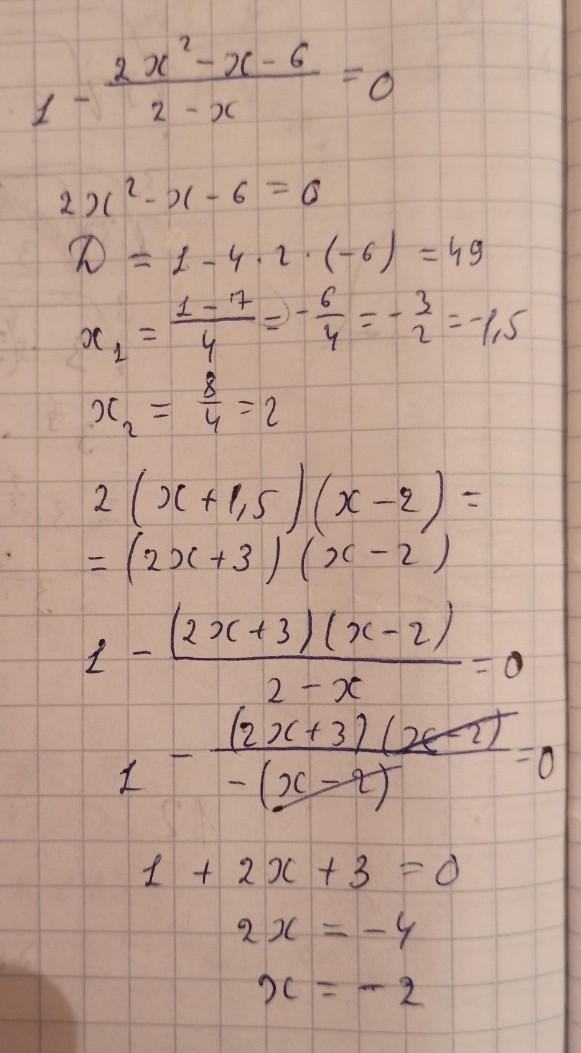 1 - (2x² - x - 6)/(2 - x) = 0
2x² - x - 6 = 0
D = 1 - 4 · 2 · (-6) = 49
x₁ = (1 - 7)/4 = -6/4 = -3/2 = -1,5
x₂ = 8/4 = 2
2(x + 1,5)(x - 2) =
= (2x + 3)(x - 2)
1 - ((2x + 3)(x - 2))/(2 - x) = 0
1 - ((2x + 3)(x - 2))/(-(x - 2)) = 0
1 + 2x + 3 = 0
2x = -4
x = -2